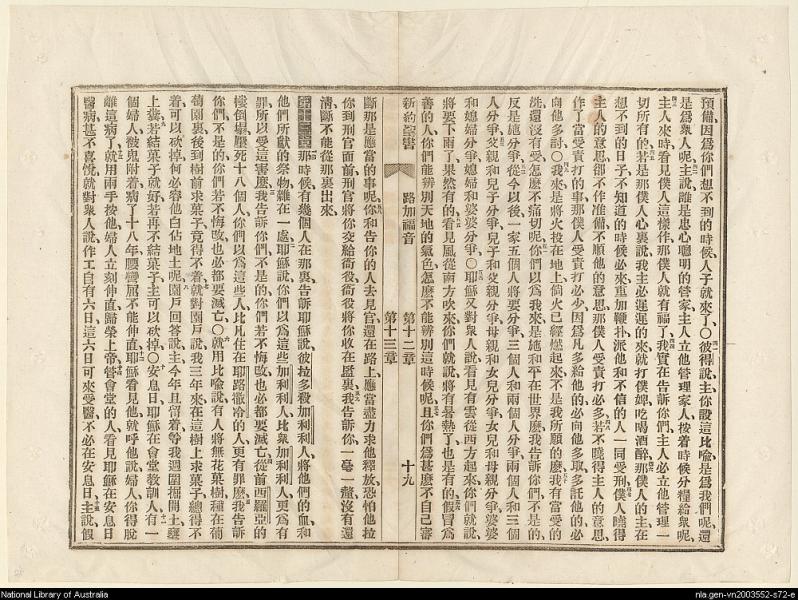 預備、因爲你們想不到的時候、人子就來了○彼得說、主、你設這比喻、是爲我們呢、還
是爲衆人呢、主說、誰是忠心聰明的管家、主人立他管理家人、按着時候分糧給衆呢、
主人來時、看見僕人這樣作、那僕人就有福了、我實在告訴你們、主人必立他管理一
切所有的、若是那僕人心裏說、我主必遲遲的來、就打僕婢、吃喝酒醉、那僕人的主、在
想不到的日子、不知道的時候、必來重加鞭扑、派他和不信的人一同受刑、僕人曉得
主人的意思、卻不作准備、不順他的意思、那僕人受責打必多、若不曉得主人的意思、
作了當受責打的事、那僕人受責打必少、因爲凡多給他的、必向他多取、多託他的、必
向他多討○我來是將火投在地上、倘火已經燃起來、不是我所願的麼、我有當受的
洗、還沒有受、怎麼不痛切呢、你們以爲我來是施和平在世界麼、我告訴你們、不是的、
反是施分爭、從今以後、一家五個人將要分爭、三個人和兩個人分爭、兩個人和三個
人分爭、父親和兒子分爭、兒子和父親分爭、母親和女兒分爭、女兒和母親分爭、婆婆
和媳婦分爭、媳婦和婆婆分爭○耶穌又對衆人說、看見有雲從西方起來、你們就說、
將要下雨了、果然有的、看見風從南方吹來、你們就說、將有暑熱了、也是有的、假冒爲
善的人、你們能辨別天地的氣色、怎麼不能辨別這時候呢、且你們爲甚麼不自己審
新約聖書 路加福音 第十二章 第十三章 十九
斷那是應當的事呢、你和告你的人去見官、還在路上、應當盡力求他釋放、恐怕他拉
你到刑官面前、刑官將你交給衙役、衙役將你收在監裏、我告訴你、一毫一釐沒有還
清、斷不能從那裏出來、
那時候、有幾個人在那裏、告訴耶穌說、彼拉多殺加利利人、將他們的血、和
他們所獻的祭物、雜在一處、耶穌說、你們以爲這些加利利人、比衆加利利人、更爲有
罪、所以受這害麼、我告訴你們、不是的、你們若不悔改、也必都要滅亡、從前西羅亞的
樓倒塌、壓死十八個人、你們以爲這些人、比凡住在耶路撒冷的人、更有罪麼、我告訴
你們、不是的、你們若不悔改、也必都要滅亡○就用比喻說、有人將無花菓樹種在葡
萄園裏、後到樹前求菓子、竟得不着、就對園戶說、我三年來在這樹上求菓子、總得不
着、可以砍掉、何必容他白佔地土呢、園戶回答說、主、今年且留着、等我週圍掘開土、壅
上糞、若結菓子就好、若再不結菓子、主可以砍掉○安息日、耶穌在會堂教訓人、有一
個婦人、被鬼附着、病了十八年、腰彎屈不能伸直、耶穌看見他、就呼他說、婦人、你得脫
離這病了、就用兩手按他、婦人立刻伸直、歸榮上帝、管會堂的人、看見耶穌在安息日
醫病、甚不喜悅、就對衆人說、作工自有六日、這六日可來受醫、不必在安息日、主說、假
National Library of Australia
nla.gen-vn2003552-s72-e